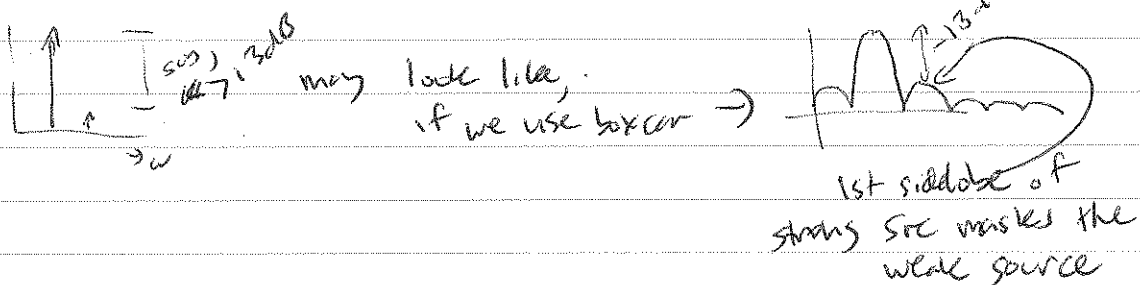 say, 13dB
may look like,
if we use boxcar →
-13 d
→ ω
1st sidelobe of
strong src masks the
weak source